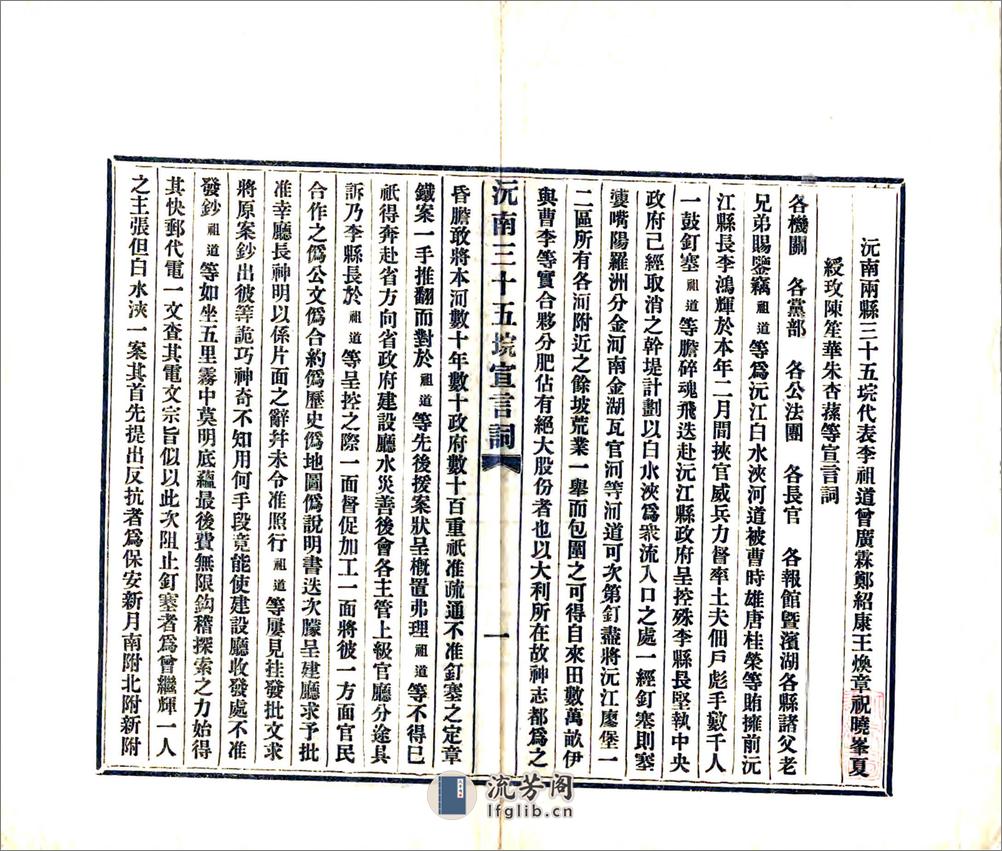 沅南兩縣三十五垸代表李祖道曾廣霖鄭紹康王煥章祝曉峯夏
綬玫陳笙華朱杏蓀等宣言詞
各機關 各黨部 各公法團 各長官 各報館曁濱湖各縣諸父老
兄弟賜鑒竊祖道等爲沅江白水浹河道被曹時雄唐桂榮等賄擁前沅
江縣長李鴻輝於本年二月間挾官威兵力督率土夫佃戶彪手數千人
一鼓釘塞祖道等膽碎魂飛迭赴沅江縣政府呈控殊李縣長堅執中央
政府已經取消之幹堤計劃以白水浹爲衆流入口之處一經釘塞則塞
嘴陽羅洲分金河南金湖瓦官河等河道可次第釘盡將沅江廖堡一
二區所有各河附近之餘坡荒業一舉而包圍之可得自來田數萬畝伊
與曹李等實合夥分肥佔有絕大股份者也以大利所在故神志都爲之
沅南三十五垸宣言詞
一
昏膽敢將本河數十年數十政府數十百重祇准疏通不准釘塞之定章
鐵案一手推翻而對於祖道等先後援案狀呈槪置弗理祖道等不得已
祇得奔赴省方向省政府建設廳水災善後會各主管上級官廳分途具
訴乃李縣長於祖道等呈控之際一面督促加工一面將彼一方面官民
合作之僞公文僞合約僞歷史僞地圖僞說明書迭次朦呈建廳求予批
准幸廳長神明以係片面之辭幷未令准照行祖道等屢見挂發批文求
將原案鈔出彼等詭巧神奇不知用何手段竟能使建設廳收發處不准
發鈔祖道等如坐五里霧中莫明底蘊最後費無限鈎稽探索之力始得
其快郵代電一文查其電文宗旨似以此次阻止釘塞者爲曾繼輝一人
之主張但白水浹一案其首先提出反抗者爲保安新月南附北附新附
流芳阁
lfglib.cn